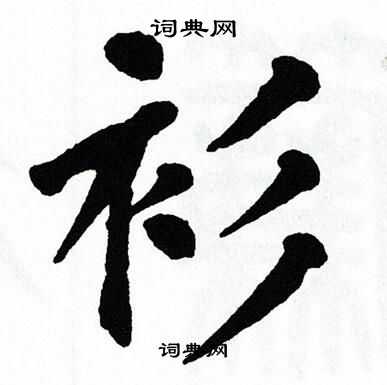 词典网
衫
词典网